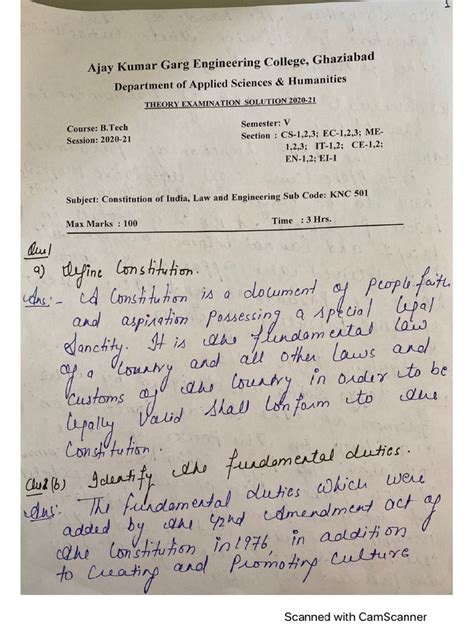 1
Ajay Kumar Garg Engineering College, Ghaziabad
Department of Applied Sciences & Humanities
THEORY EXAMINATION SOLUTION 2020-21
Course: B.Tech
Semester: V
Session: 2020-21
Section : CS-1,2,3; EC-1,2,3; ME-
1,2,3; IT-1,2; CE-1,2;
EN-1,2; EI-1
Subject: Constitution of India, Law and Engineering Sub Code: KNC 501
Max Marks : 100
Time : 3 Hrs.
Que1
a) Define Constitution.
Ans:- A Constitution is a document of people faith
and aspiration possessing a special legal
Sanctity. It is the fundamental law
of a Country and all other laws and
Customs of the Country in order to be
legally Valid Shall Conform to the
Constitution.
(b) Identify the fundamental duties.
Ans: The fundamental duties which were
added by the 42nd Amendment act of
the Constitution in 1976, in addition
to Creating and Promoting Culture
Scanned with CamScanner